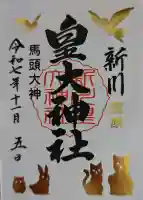 新川
皇大神社
馬頭大神
令和七年十一月 五日